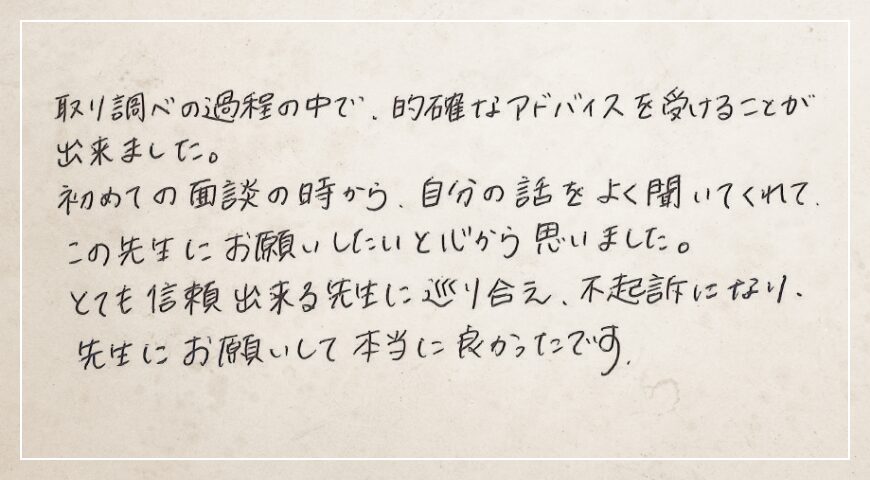 取り調べの過程の中で、的確なアドバイスを受けることが
出来ました。
初めての面談の時から、自分の話をよく聞いてくれて、
この先生にお願いしたいと心から思いました。
とても信頼出来る先生に巡り合え、不起訴になり、
先生にお願いして本当に良かったです。